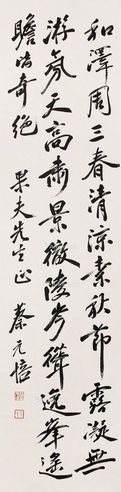 和澤周三春清涼素秋節露凝無
游氛天高肅景徹陵岑聳逸峯遙
瞻皆奇絕
果夫先生正 蔡元培